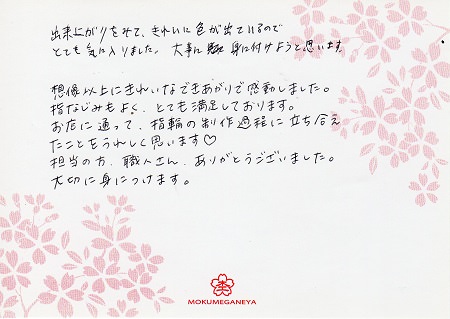 出来上がりをみて、きれいに色が出ているので
とても気に入りました。大事に 身に付けようと思います。
想像以上にきれいなできあがりで感動しました。
指なじみもよく、とても満足しております。
お店に通って、指輪の制作過程に立ち合え
たことをうれしく思います♡
担当の方、職人さん、ありがとうございました。
大切に身につけます。
MOKUMEGANEYA